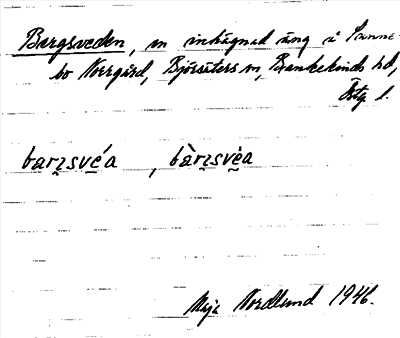 Bergsveden, en inhägnad äng i Sänne-
bo Norrgård, Björsäters sn, Bankekinds hd,
Östg l.
barʒsve̱a , bàrʒsvèa
Maja Nordlund 1946.